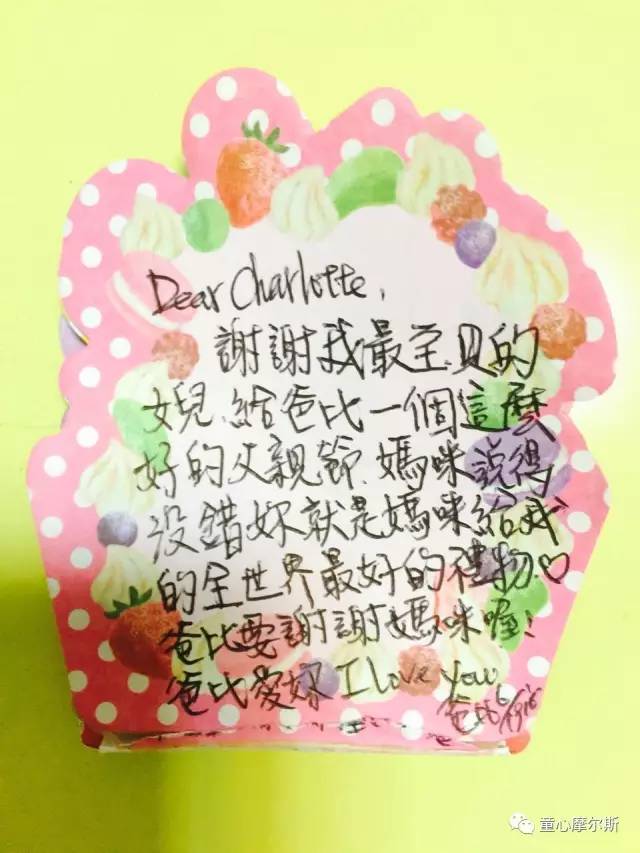 Dear Charlotte,
謝謝我最宝贝的
女兒、給爸比一個這麼
好的父親節、媽咪說得
没錯妳就是媽咪給我
的全世界最好的禮物♡
爸比要謝謝媽咪喔!
爸比愛妳 I love you
爸比 6/19'16
童心摩尔斯